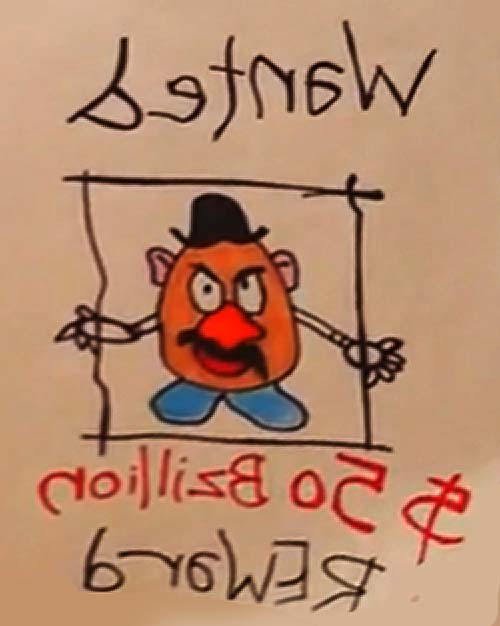 Wanted
$ 50 Bzillion
REWarD